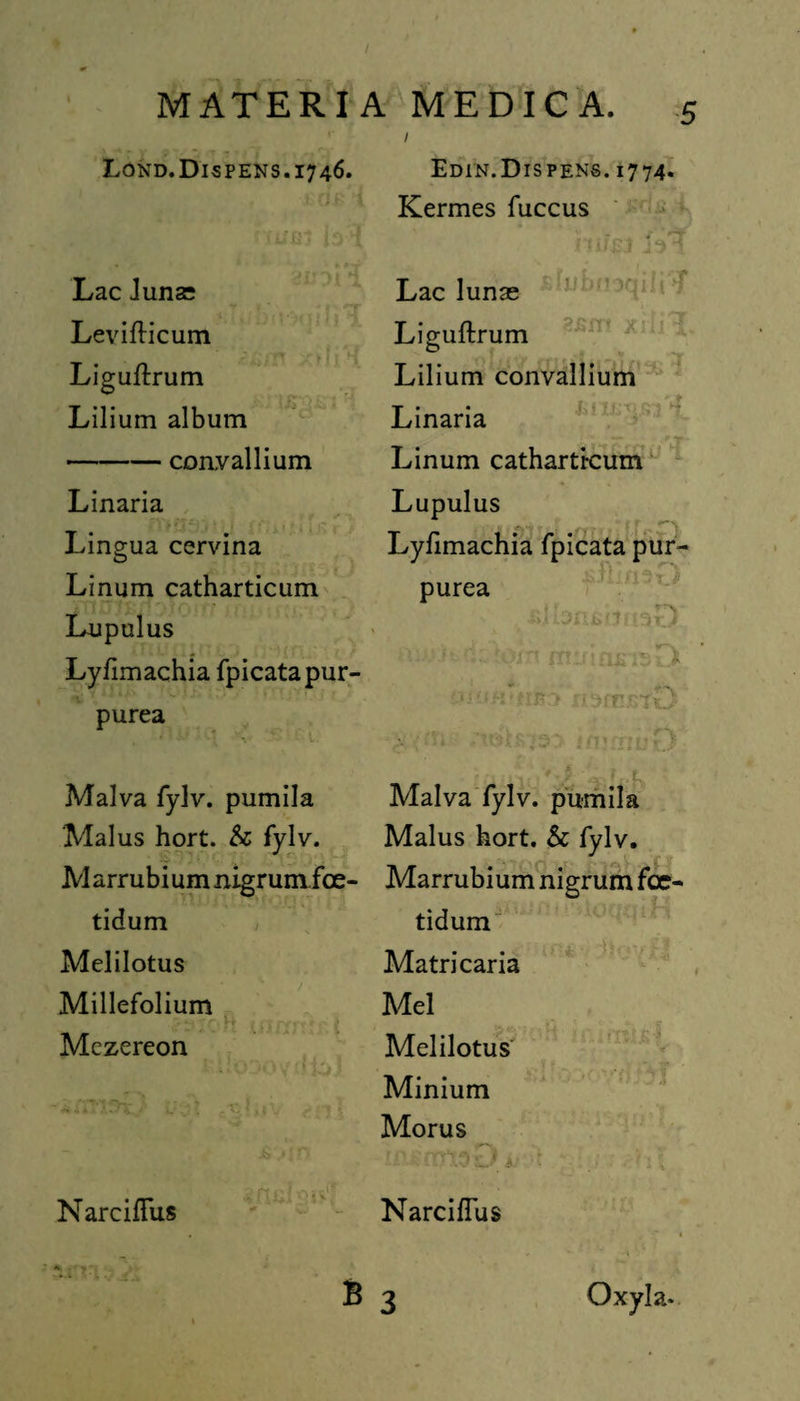 MATERIA MEDICA. 5
LOND.DISPENS.1746.
Lac lunæ
Leviſticum
Liguſtrum
Lilium album
——— convallium
Linaria
Lingua cervina
Linum catharticum
Lupulus
Lyſimachia ſpicata pur-
purea
Malva ſylv. pumila
Malus hort. & ſylv.
Marrubium nigrum fœ-
tidum
Melilotus
Millefolium
Mezereon
Narciſſus
EDIN.DISPENS.1774.
Kermes ſuccus
Lac lunæ
Liguſtrum
Lilium convallium
Linaria
Linum catharticum
Lupulus
Lyſimachia ſpicata pur-
purea
Malva ſylv. pumila
Malus hort. & ſylv.
Marrubium nigrum fœ-
tidum
Matricaria
Mel
Melilotus
Minium
Morus
Narciſſus
B 3
Oxyla-